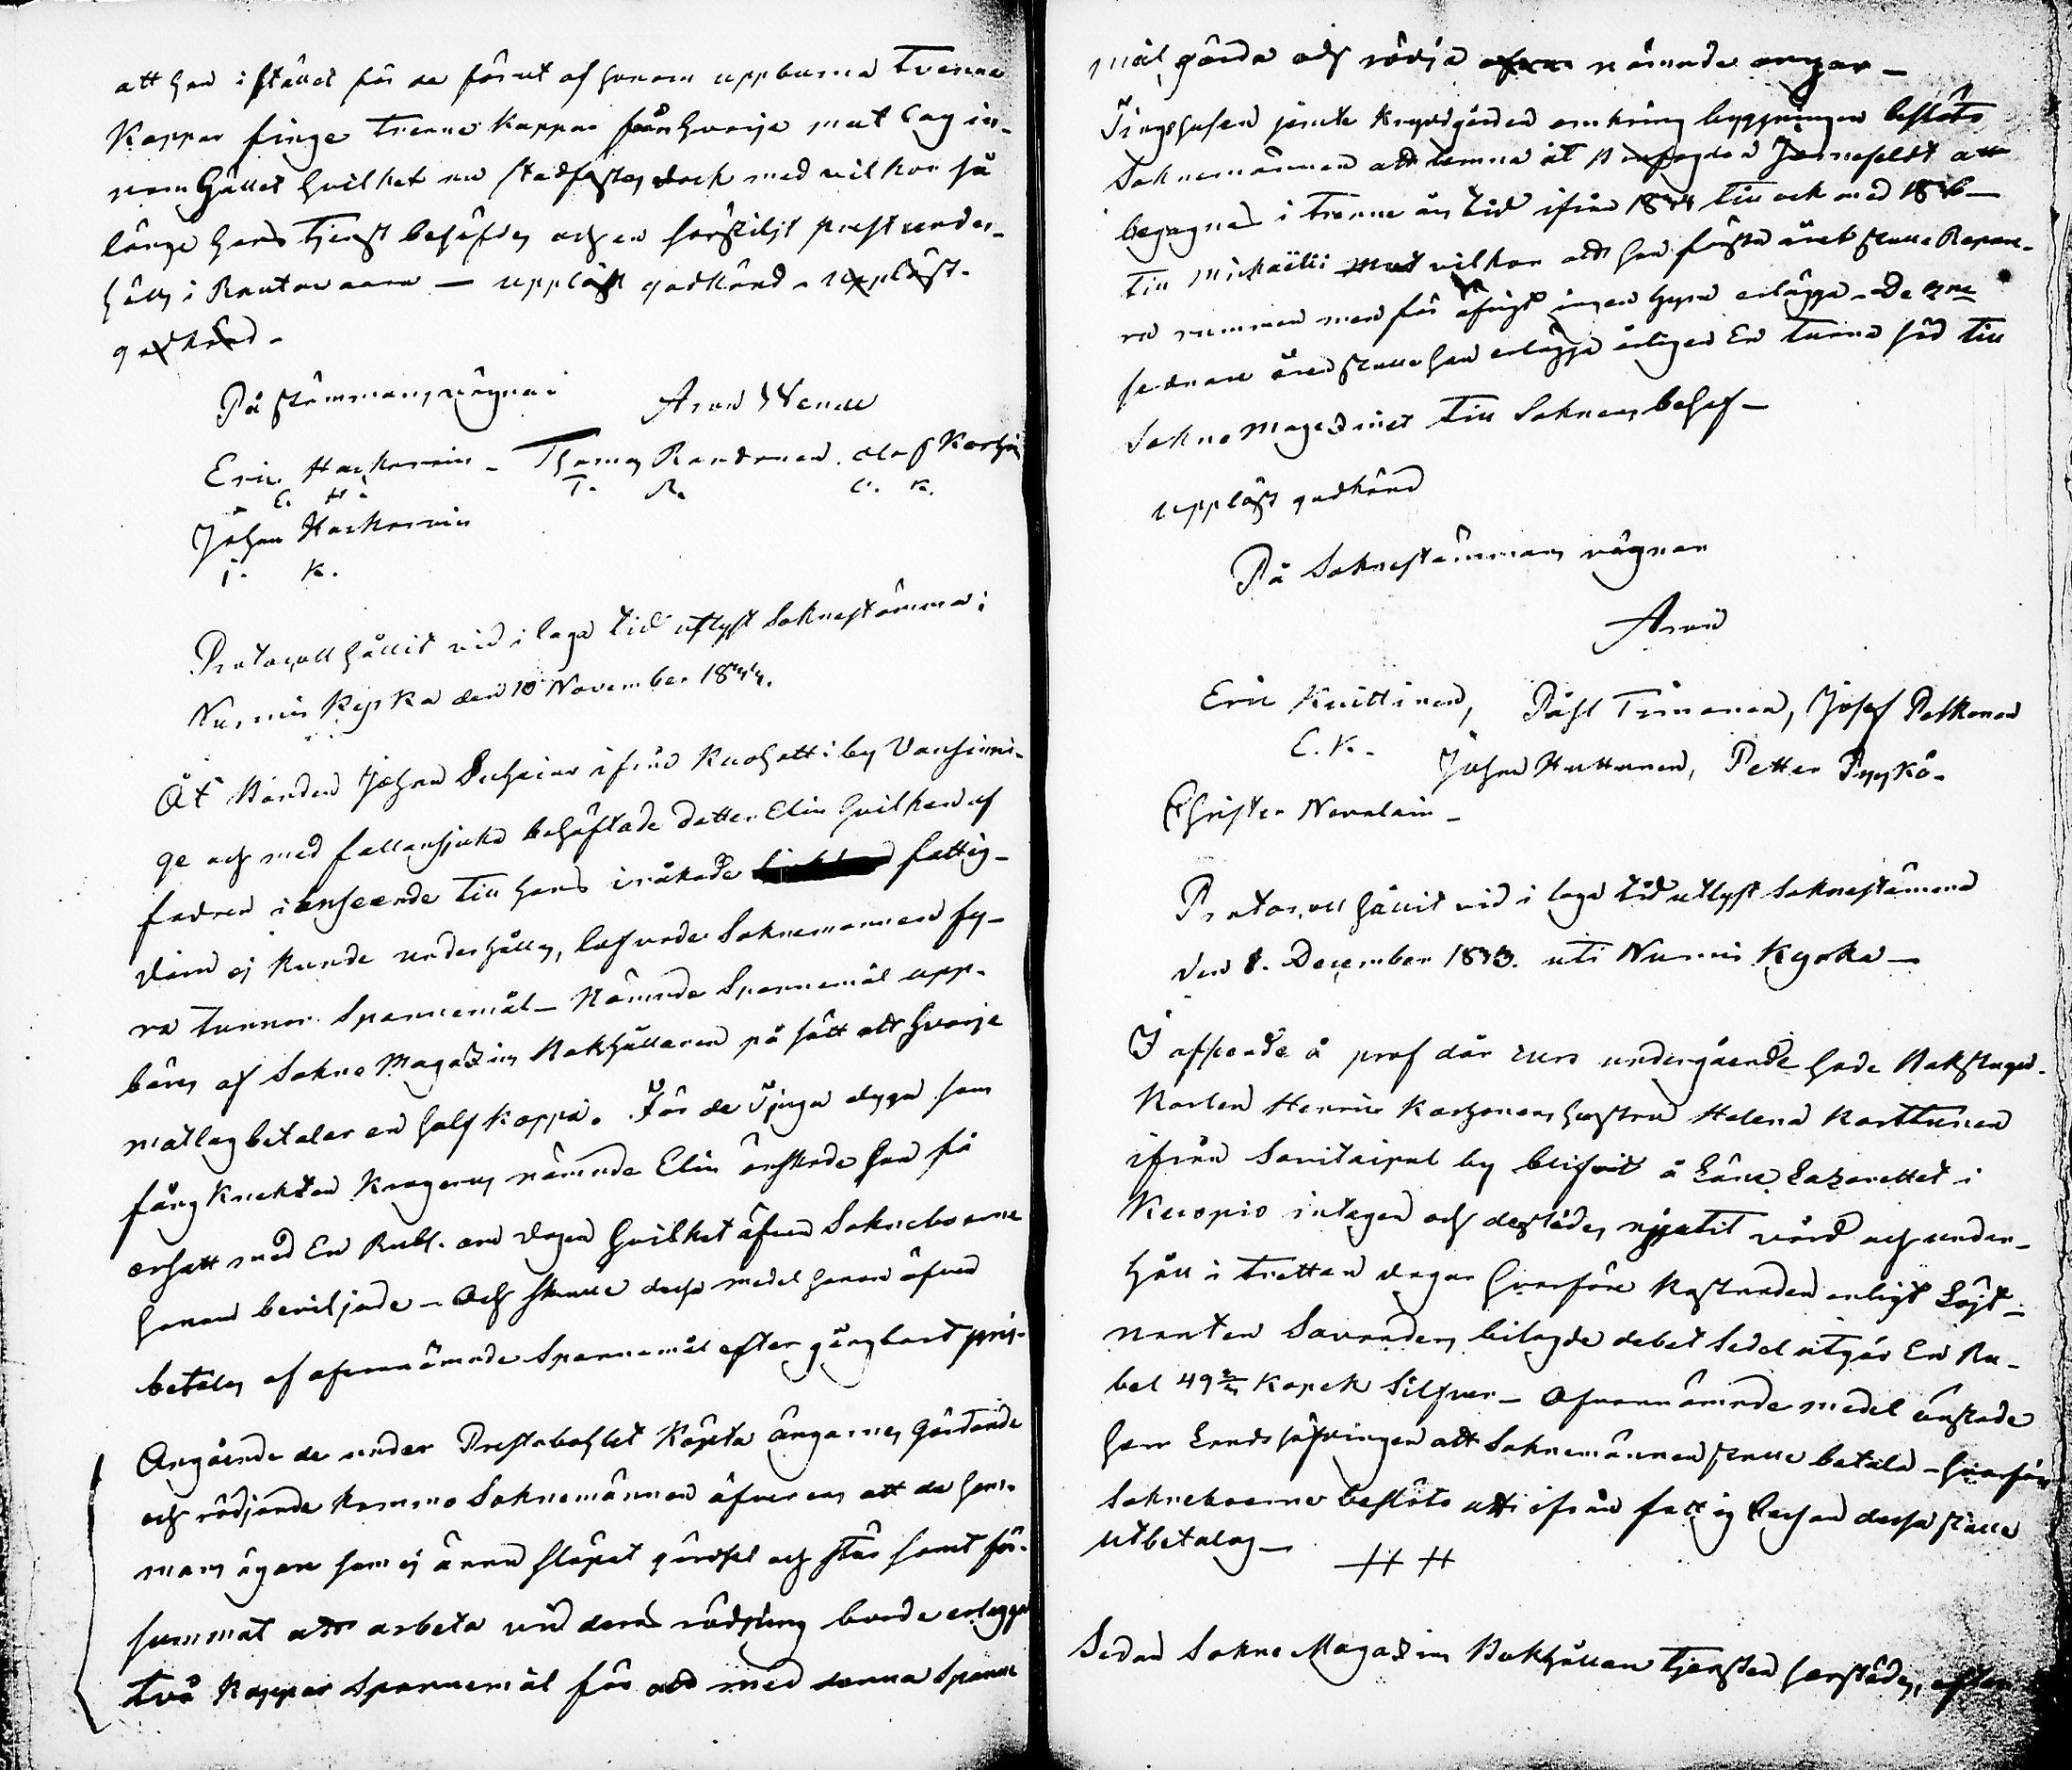 att han i stället för de förut af honom uppburna Tvenne
Kappar finge Trenne Kappar från hvarje mat lag in-
nom Gället hvilket nu stadfästes dock med vilkor så
länge hans tjenst behöfdes och en särskilt prest under-
hålles i Rautavaara — uppläst godkänd - uppläst-
godkänd-
På stämmans vägnar
Aron Wenell
Eric Hackarain - Thomas Randonen. Olof Korhoin
E. H. T. R. O. K.
Johan Hackarain
J. K.
Protocoll hållit vid i laga tid utlyst Soknestämma i
Nurmis Kyrka den 10 November 1844.
Åt Bonden Johan Suhoins ifrån Kuohatti by Vansinni-
ge och med fallansjuka behäftade dotter Elin hvilken af
fadren i anseende till hans iråkade fattig-
dom ej kunde underhållas, lofvade Soknemannen fy-
ra tunnor Spannemål — Nämnde Spannemål upp-
bäres af Sokne Magazins Bokhållaren på sätt att hvarje
matlag betalar en half kappa. För de Tjugu dygn som
fång knekten Krogerus nämnde Elin önskade han få
ersatt med En Rubl. om dagen hvilket äfven Sokneboerne
honom beviljade — Och skulle dessa medel honom äfven
betalas af ofvannämnde Spannemål efter gångbart pris.
Angående de under Prestabohlet Köpta ängarnes gärdande
och rödjande kommo Soknemännen öfverens att de hem-
mans ägare som ej ännu släpat gärdsel och stör samt för-
summat att arbeta vid deras rödjning borde erlägga
två Kappar Spannemål för att med denna Spanne
mål, gärda och rödja nämnde ängar —
Tingshusen jemte Krydgården omkring byggningen beslöto
Soknemännen att lemna åt Kronofogden Jernefeldt att
begagnas i Trenne års tid ifrån 1844 till och med 1846—
till Michaëlis med vilkor att han första året skulle Repare-
ra rummen men för öfrigt ingen hyra erlägga - De 2ne
sednare åren skulle han erlägga årligen En tunna säd till
Sokne Magazinet till Soknens behof —
uppläst godkänd
På Soknestämmans vägnar
Aron
Eric Kuittinen, Påhl Timonen, Josef Pelkonen
E. K. Johan Huttunen, Petter Pyykö-
Christer Nevalain —
Protocoll hållit vid i laga tid utlyst Soknestämma
den 8. December 1843. uti Nurmis Kyrka —
I afseende å prof där curs undergående hade Backstugu-
Karlen Henric Karhonens hustru Helena Karttunen
ifrån Savikaipal by blifvit å Läns Lazarettet i
Kuopio intagen och derstädes njutit vård och under-
håll i Tretton dagar hvarföre kostnaden enligt Löjt-
nanten Savanders bilagde debet Sedel utgör En Ru-
bel 49 2/7 Kopek Silfver — Ofvannämnde medel önskade
herr Landshöfdingen att Soknemännen skulle betala — hvarför
Sokneboerne beslöto att ifrån fattig Cassan dessa skulle
utbetalas —
Sedan Sokne Magazins Bokhållare tjensten härstädes, efter